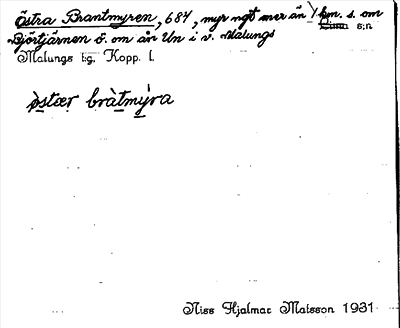 Östra Brantmyren, 684, myr ngt mer än 1 km. s. om
Björtjärnen ö. om ån Un i v. Malungs s:n
Malungs tg, Kopp. l.
òstær bràtmỳra
Niss Hjalmar Matsson 1931